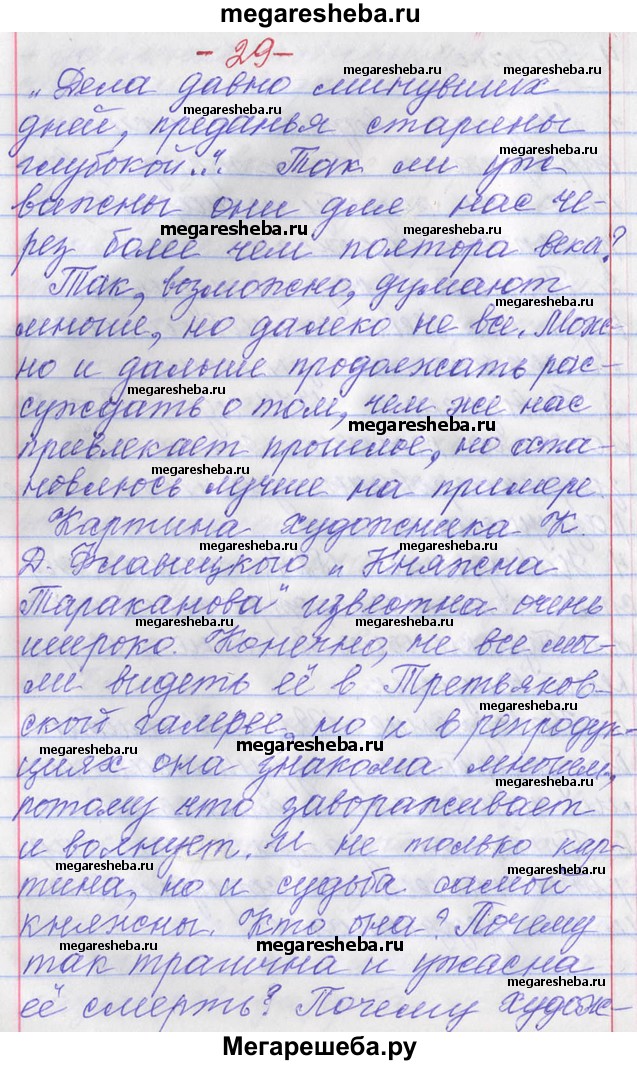 megaresheba.ru
- 29 -
megaresheba.ru
„Дела давно минувших
megaresheba.ru
дней, преданья старины
megaresheba.ru
глубокой...". Так ли уж
megaresheba.ru
важны они для нас че-
рез более чем полтора века?
megaresheba.ru
Так, возможно, думают
megaresheba.ru
многие, но далеко не все. Мож-
но и дальше продолжать рас-
megaresheba.ru
суждать о том, чем же нас
megaresheba.ru
привлекает прошлое, но оста-
megaresheba.ru
новлюсь лучше на примере.
Картина художника К.
megaresheba.ru
Д. Флавицкого „Княжна
Тараканова" известна очень
megaresheba.ru
широко. Конечно, не все мы-
ли видеть её в Третьяков-
ской галерее, но и в репродук-
megaresheba.ru
циях она знакома многим,
megaresheba.ru
потому что завораживает
и волнует. И не только кар-
megaresheba.ru
тина, но и судьба самой
княжны. Кто она? Почему
megaresheba.ru
так трагична и ужасна
megaresheba.ru
её смерть? Почему худож-
Мегарешеба.ру